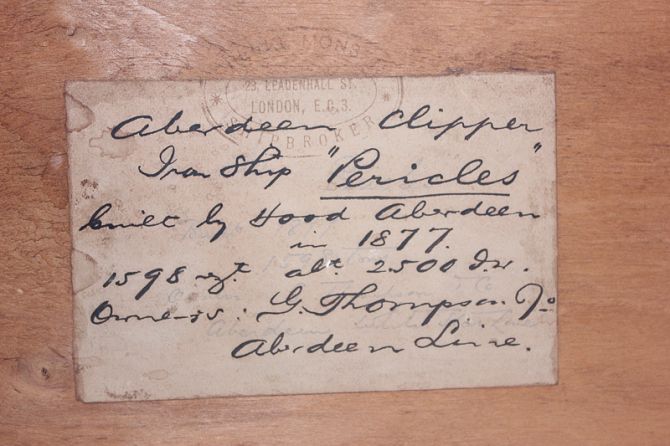 23, LEADENHALL ST.
LONDON, E.C.3.
SHIPBROKER
Aberdeen Clipper
Iron Ship "Pericles"
built by Hood Aberdeen
in 1877.
1598 regt. abt. 2500 d.w.
Owners: G. Thompson
Aberdeen Line.